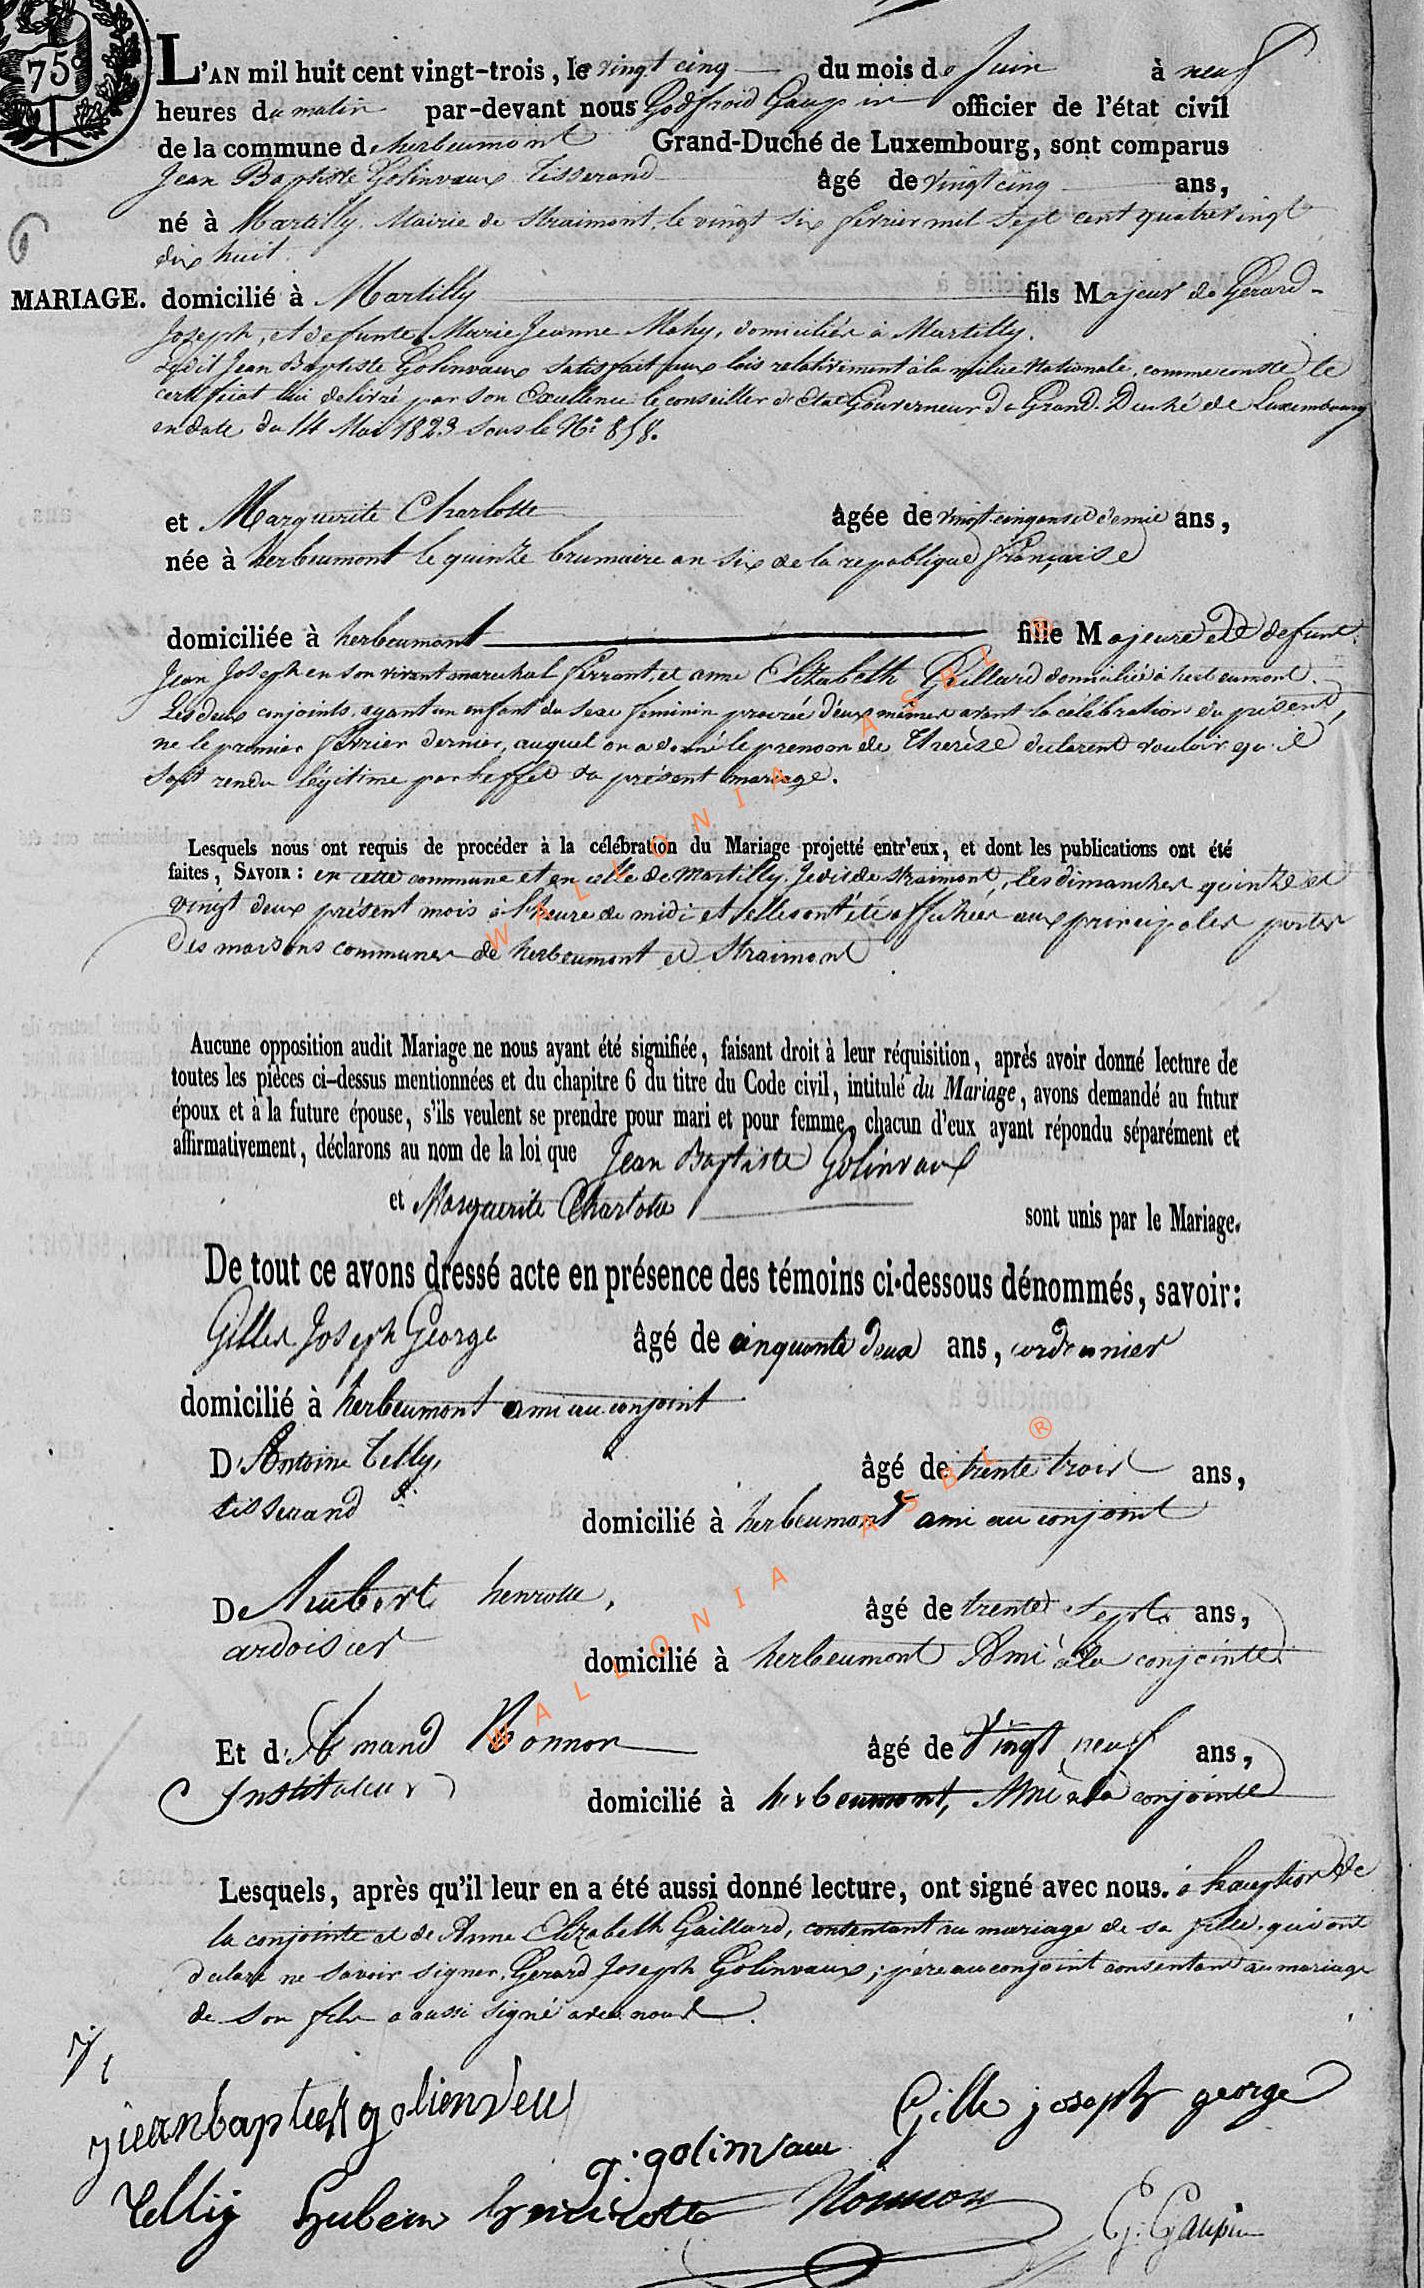 75
L'AN mil huit cent vingt-trois, le vingt cinq du mois de Juin à neuf
heures du matin par-devant nous Godfroid Gaupin officier de l'état civil
de la commune d herbeumont Grand-Duché de Luxembourg, sont comparus
Jean Baptiste Golinvaux tisserand âgé de vingt cinq ans,
né à Martilly. Mairie de Straimont, le vingt six fevrier mil sept cent quatre vingt
dix huit.
MARIAGE. domicilié à Martilly fils Majeur de Gerard-
Joseph, et defunte Marie Jeanne Mahy, domiciliés à Martilly.
Ledit Jean Baptiste Golinvaux satisfait aux lois relativement à la milice Nationale, comme conste le
certificat lui delivré par son Excellence le conseiller d'Etat Gouverneur du Grand-Duché de Luxembourg
en date du 14 Mai 1823 sous le No. 858.
et Marguerite Charlotte âgée de vingt cinq ans et demie ans,
née à herbeumont le quinze brumaire an six de la republique française
domiciliée à herbeumont fille Majeure de defunt.
Jean Joseph en son vivant marechal ferrant, et anne Elizabeth Gaillard domiciliée à herbeumont.
Lesdeux conjoints, ayant un enfant du sexe feminin procréé d'eux mêmes avant la célébration du présent,
ne le premier fevrier dernier, auquel on a donné le prenom de Therèse declarent vouloir qu'il
soit rendu légitime par l'effet du présent mariage.
Lesquels nous ont requis de procéder à la célébration du Mariage projetté entr'eux, et dont les publications ont été
faites, SAVOIR : en cette commune et en celle de Martilly. de Straimont, les dimanches quinze et
vingt deux présent mois à l'heure de midi et elles ont été affichées aux principales portes
des maisons communes de herbeumont et Straimont
Aucune opposition audit Mariage ne nous ayant été signifiée, faisant droit à leur réquisition, après avoir donné lecture de
toutes les pièces ci-dessus mentionnées et du chapitre 6 du titre du Code civil, intitulé du Mariage, avons demandé au futur
époux et à la future épouse, s'ils veulent se prendre pour mari et pour femme, chacun d'eux ayant répondu séparément et
affirmativement, déclarons au nom de la loi que Jean Baptiste Golinvaux
et Marguerite Charlotte sont unis par le Mariage.
De tout ce avons dressé acte en présence des témoins ci-dessous dénommés, savoir:
Gilles Joseph George âgé de cinquante deux ans, cordonnier
domicilié à herbeumont ami au conjoint
D'Antoine Telly, âgé de trente trois ans,
tisserand domicilié à herbeumont ami au conjoint
De hubert henrotte, âgé de trente sept ans,
ardoisier domicilié à herbeumont Ami à la conjointe
Et d'Amand Nonnon âgé de Vingt neuf ans,
Instituteur domicilié à herbeumont, Ami à la conjointe
Lesquels, après qu'il leur en a été aussi donné lecture, ont signé avec nous. à l'exeption de
la conjointe et de Anne Elizabeth Gaillard, consentant au mariage de sa fille, qui ont
declaré ne savoir signer. Gerard Joseph Golinvaux, père au conjoint consentant au mariage
de son fils a aussi signé avec nous.
jean baptiest golienveu
Gille joseph george
g: golinvau
Tellij Huber henrotte Nonnon G: Gaupin
WALLONIA ASBL ®
WALLONIA ASBL ®